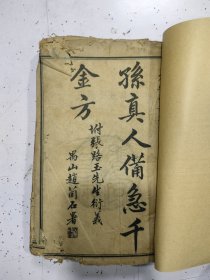 孫真人備急千
金方
坿張路玉先生衍義
禺山趙前石署